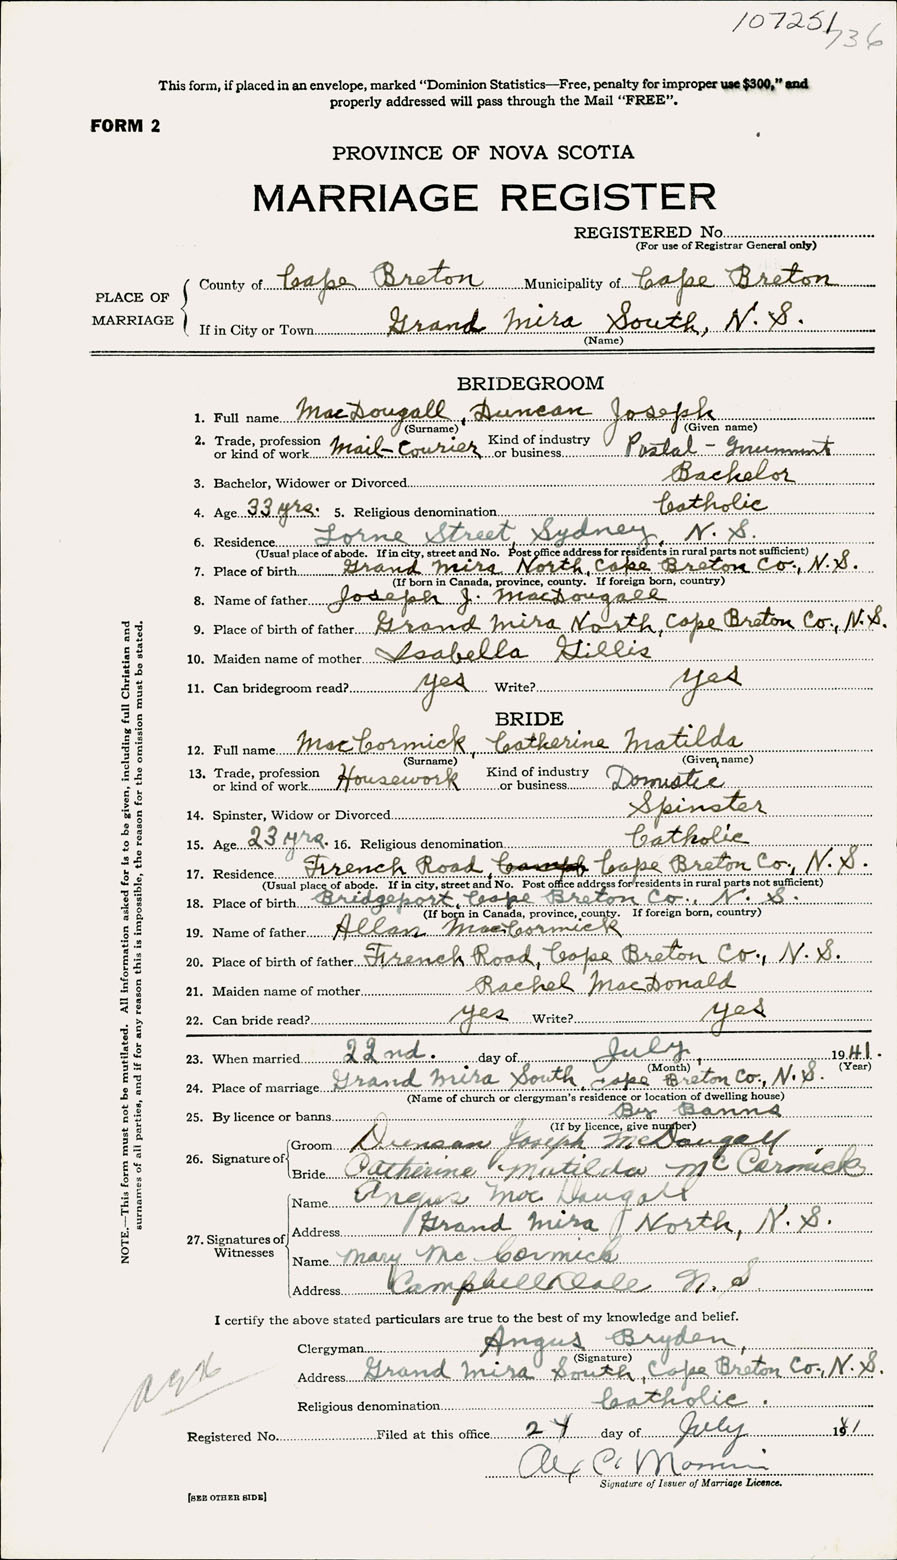 107251
736
This form, if placed in an envelope, marked "Dominion Statistics—Free, penalty for improper use $300," and
properly addressed will pass through the Mail "FREE".
FORM 2
PROVINCE OF NOVA SCOTIA
MARRIAGE REGISTER
REGISTERED No.
(For use of Registrar General only)
PLACE OF MARRIAGE
County of Cape Breton Municipality of Cape Breton
If in City or Town Grand Mira South, N. S.
(Name)
BRIDEGROOM
1. Full name MacDougall, Duncan Joseph
(Surname) (Given name)
2. Trade, profession or kind of work Mail-Courier Kind of industry or business Postal -
3. Bachelor, Widower or Divorced Bachelor
4. Age 33 yrs. 5. Religious denomination Catholic
6. Residence Lorne Street, Sydney, N. S.
(Usual place of abode. If in city, street and No. Post office address for residents in rural parts not sufficient)
7. Place of birth Grand Mira North, Cape Breton Co., N.S.
(If born in Canada, province, county. If foreign born, country)
8. Name of father Joseph J. MacDougall
9. Place of birth of father Grand Mira North, Cape Breton Co., N.S.
10. Maiden name of mother Isabella Gillis
11. Can bridegroom read? yes Write? yes
BRIDE
12. Full name MacCormick, Catherine Matilda
(Surname) (Given name)
13. Trade, profession or kind of work Housework Kind of industry or business Domestic
14. Spinster, Widow or Divorced Spinster
15. Age 23 yrs. 16. Religious denomination Catholic
17. Residence French Road, Cape Breton Co., N. S.
(Usual place of abode. If in city, street and No. Post office address for residents in rural parts not sufficient)
18. Place of birth Bridgeport, Cape Breton Co., N. S.
(If born in Canada, province, county. If foreign born, country)
19. Name of father Allan MacCormick
20. Place of birth of father French Road, Cape Breton Co., N. S.
21. Maiden name of mother Rachel MacDonald
22. Can bride read? yes Write? yes
23. When married 22nd. day of July, 1941.
(Month) (Year)
24. Place of marriage Grand Mira South, Cape Breton Co., N.S.
(Name of church or clergyman's residence or location of dwelling house)
25. By licence or banns By Banns
(If by licence, give number)
26. Signature of Groom Duncan Joseph McDougall
Bride Catherine Matilda McCormick
27. Signatures of Witnesses
Name Angus MacDougall
Address Grand Mira North, N. S.
Name Mary McCormick
Address Campbelldale N. S
I certify the above stated particulars are true to the best of my knowledge and belief.
Clergyman Angus Bryden,
(Signature)
Address Grand Mira South, Cape Breton Co., N. S.
Religious denomination Catholic.
Registered No. Filed at this office 24 day of July 1941
Alex C.
Signature of Issuer of Marriage Licence.
[SEE OTHER SIDE]
NOTE.—This form must not be mutilated. All information asked for is to be given, including full Christian and
surnames of all parties, and if for any reason this is impossible, the reason for the omission must be stated.